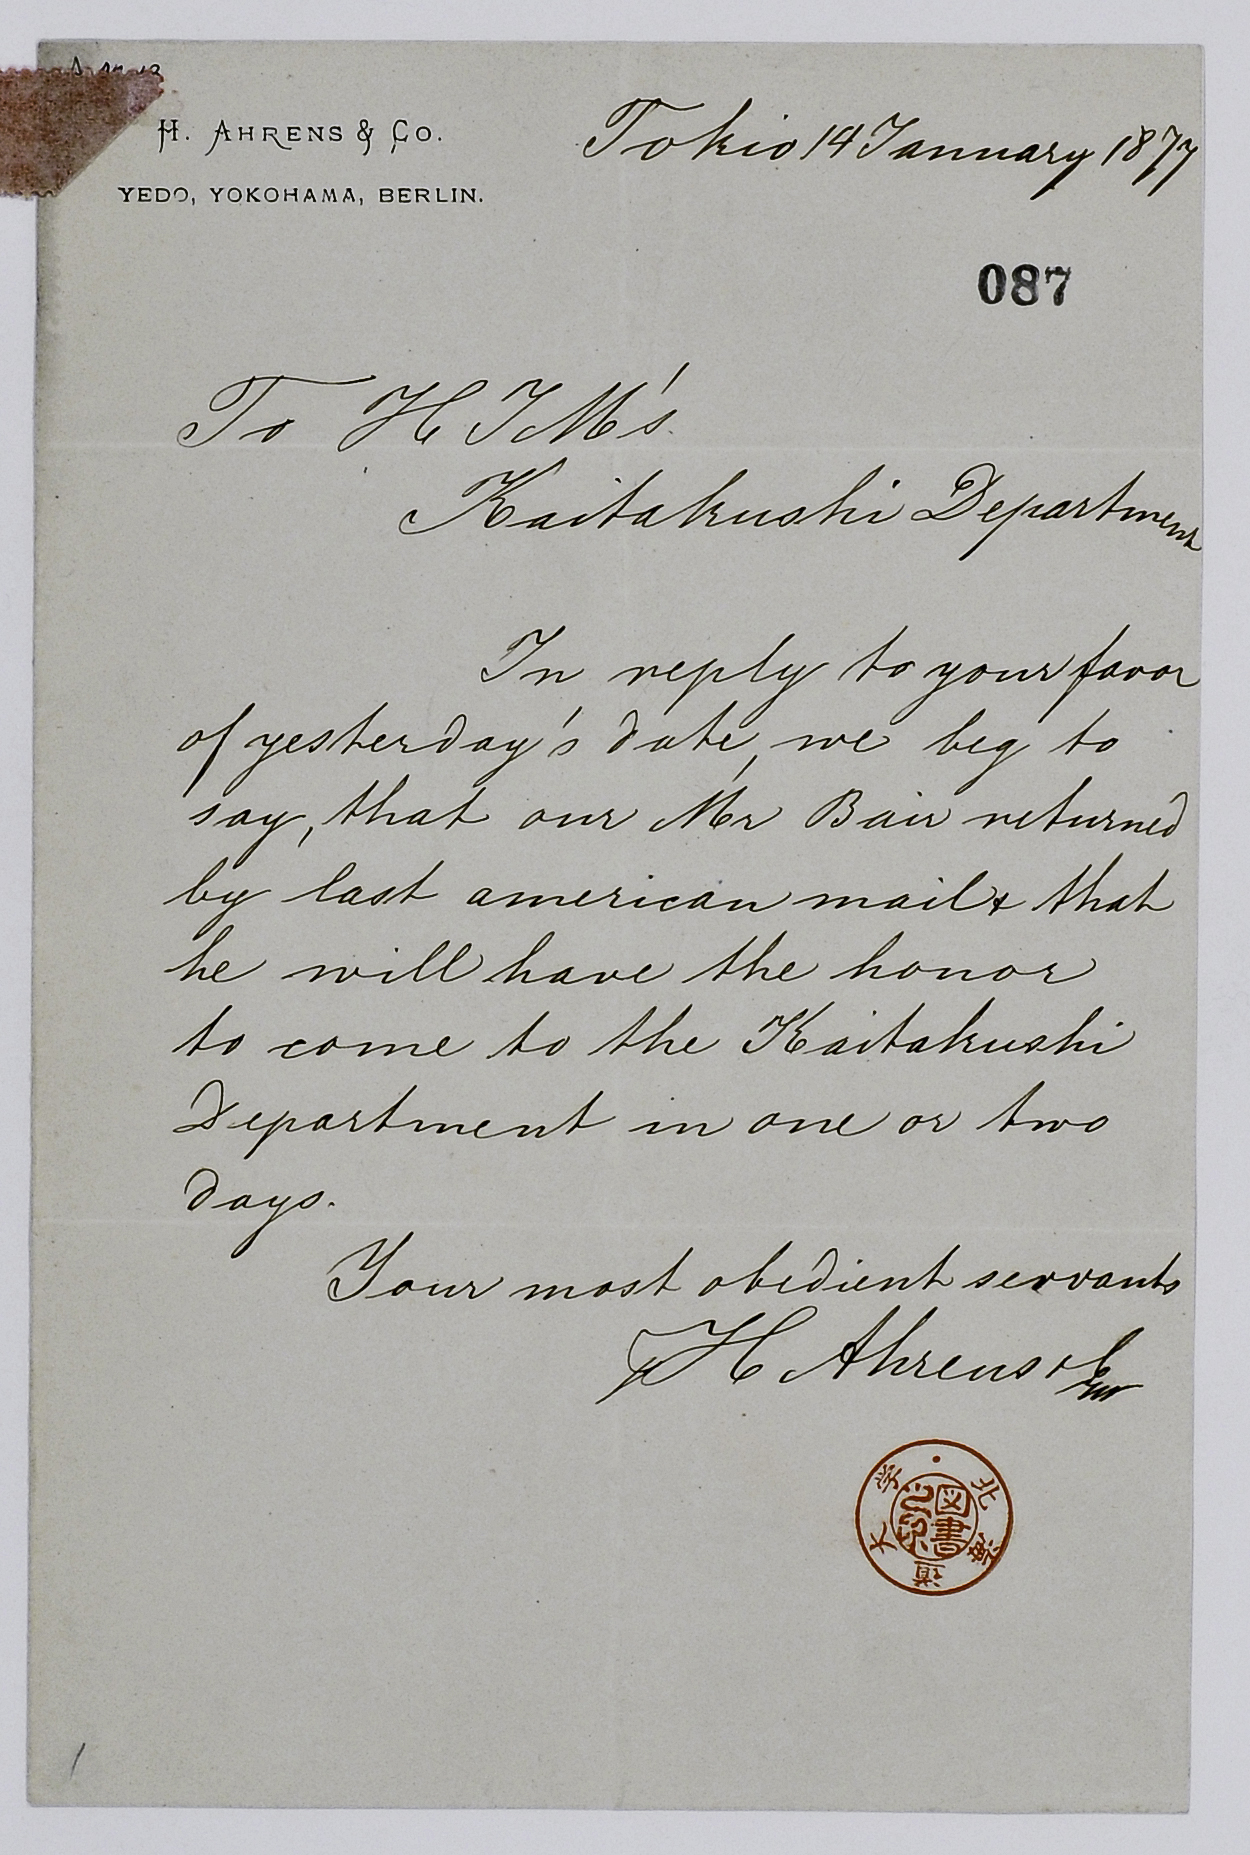 H. AHRENS & CO.
YEDO, YOKOHAMA, BERLIN.
Tokio 14 January 1877
087
To H I M's
Kaitakushi Department
In reply to your favor
of yesterday's date, we beg to
say, that our Mr Bair returned
by last american mail & that
he will have the honor
to come to the Kaitakushi
Department in one or two
days.
Your most obedient servants
H Ahrens & Co
北海道大学
図書之印